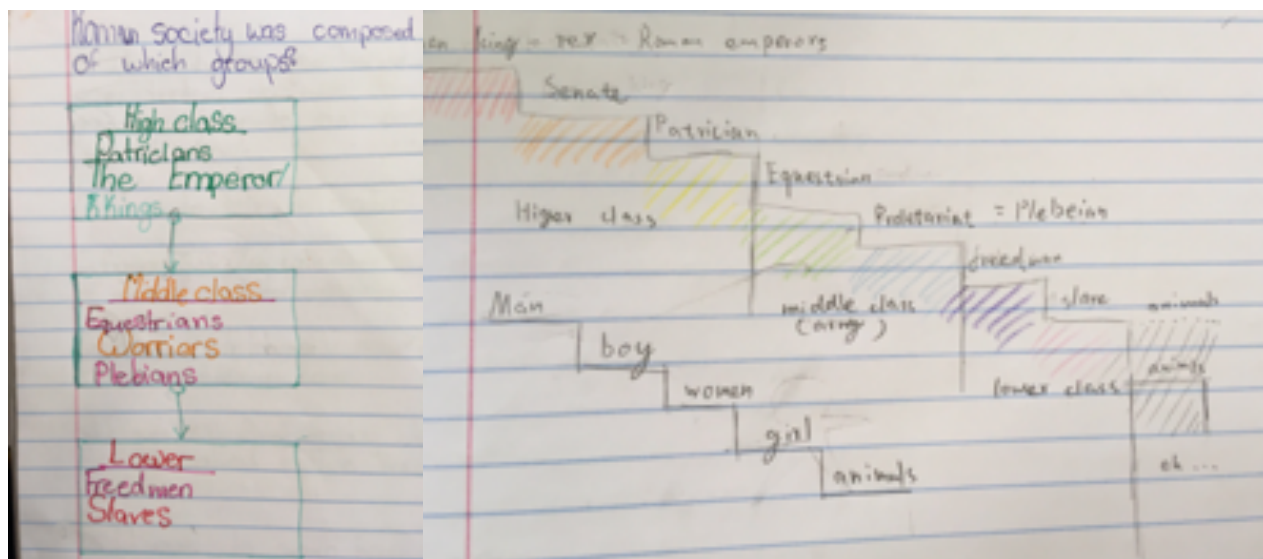 Roman society was composed
of which groups?
High class
Patricians
The Emperor/
Kings
Middle class
Equestrians
Warriors
Plebians
Lower
Freedmen
Slaves
king - rex - Roman emperors
Senate
Patrician
Equestrian
Higer class
= Plebeian
freedman
slave
animals
middle class
(army)
lower class
animals
eh ...
Man
boy
women
girl
animals